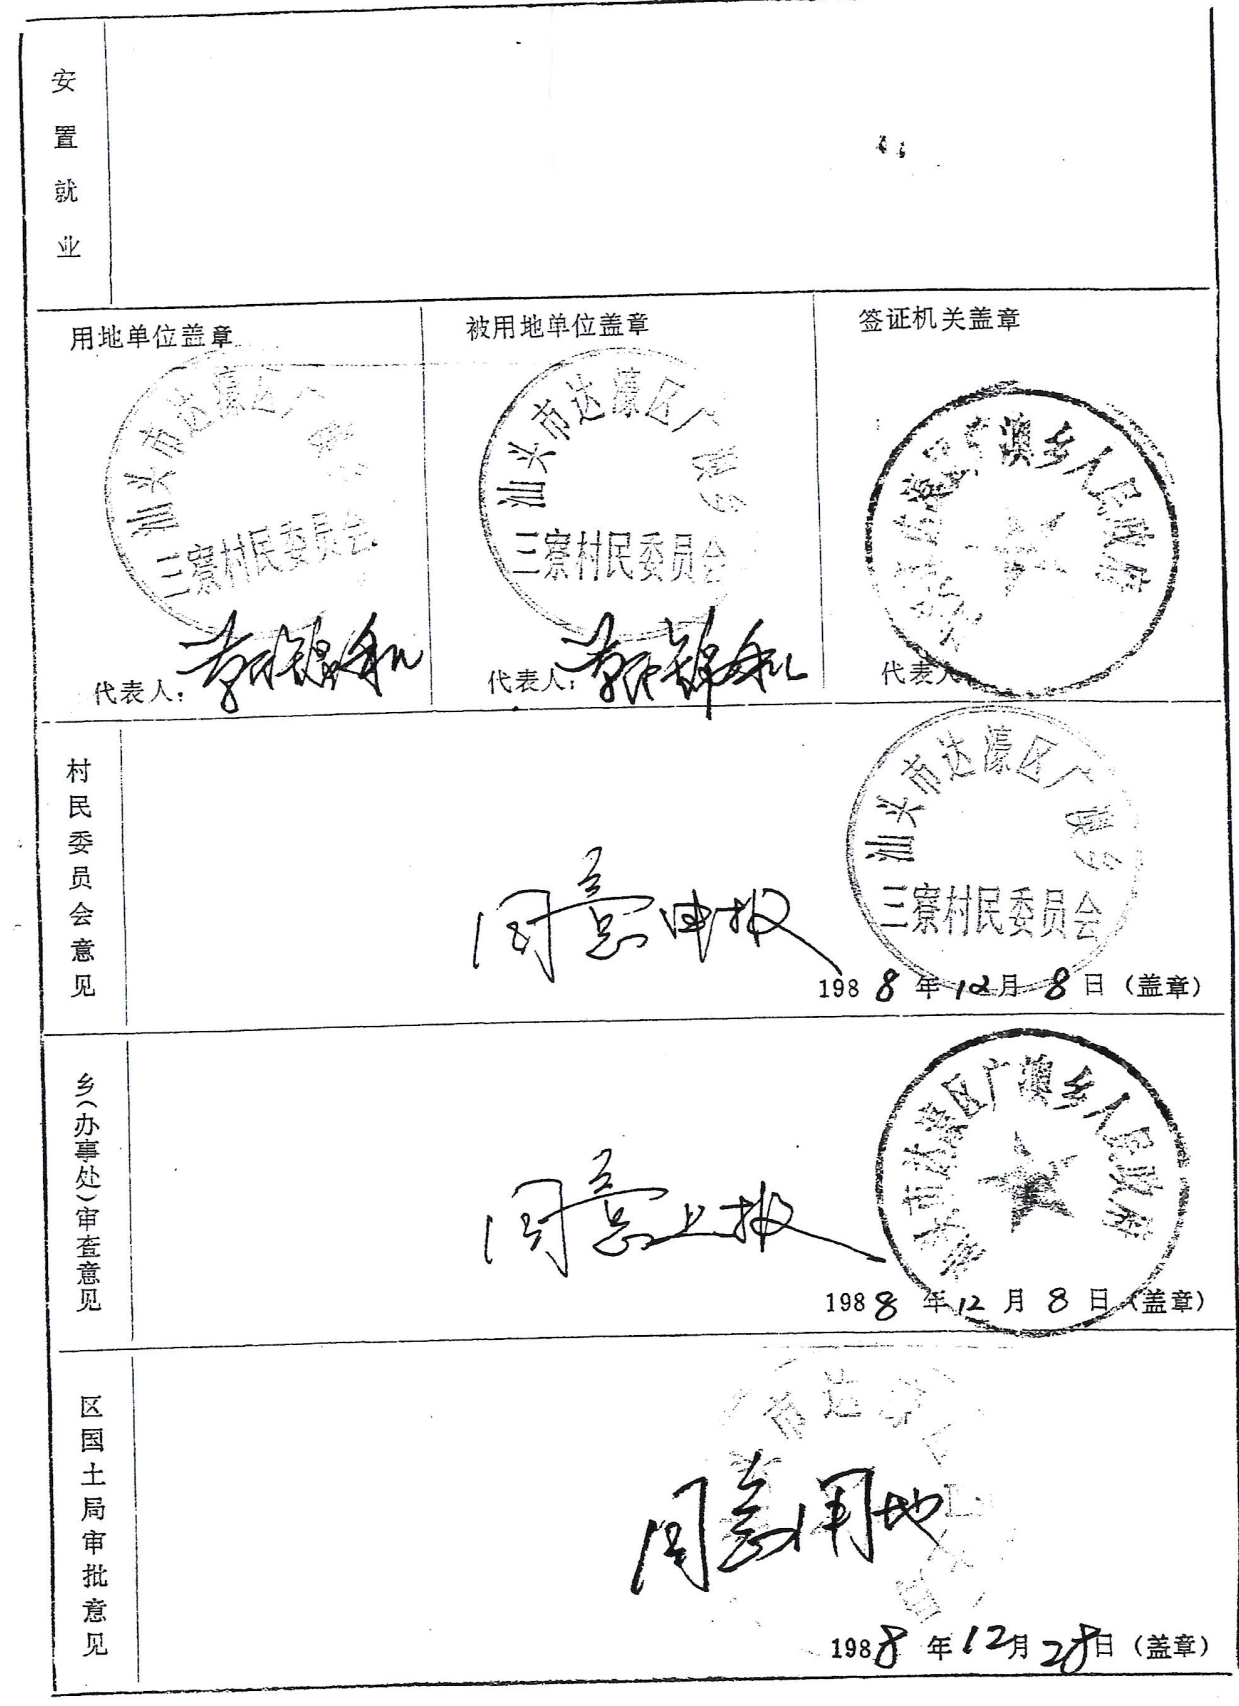 安置就业
用地单位盖章
汕头市达濠区广澳乡
三寮村民委员会
代表人：
被用地单位盖章
汕头市达濠区广澳乡
三寮村民委员会
代表人：
签证机关盖章
汕头市达濠区广澳乡人民政府
代表人
村民委员会意见
同意申报
汕头市达濠区广澳乡
三寮村民委员会
1988年12月8日（盖章）
乡（办事处）审查意见
同意上报
汕头市达濠区广澳乡人民政府
1988年12月8日（盖章）
区国土局审批意见
同意用地
1988年12月28日（盖章）